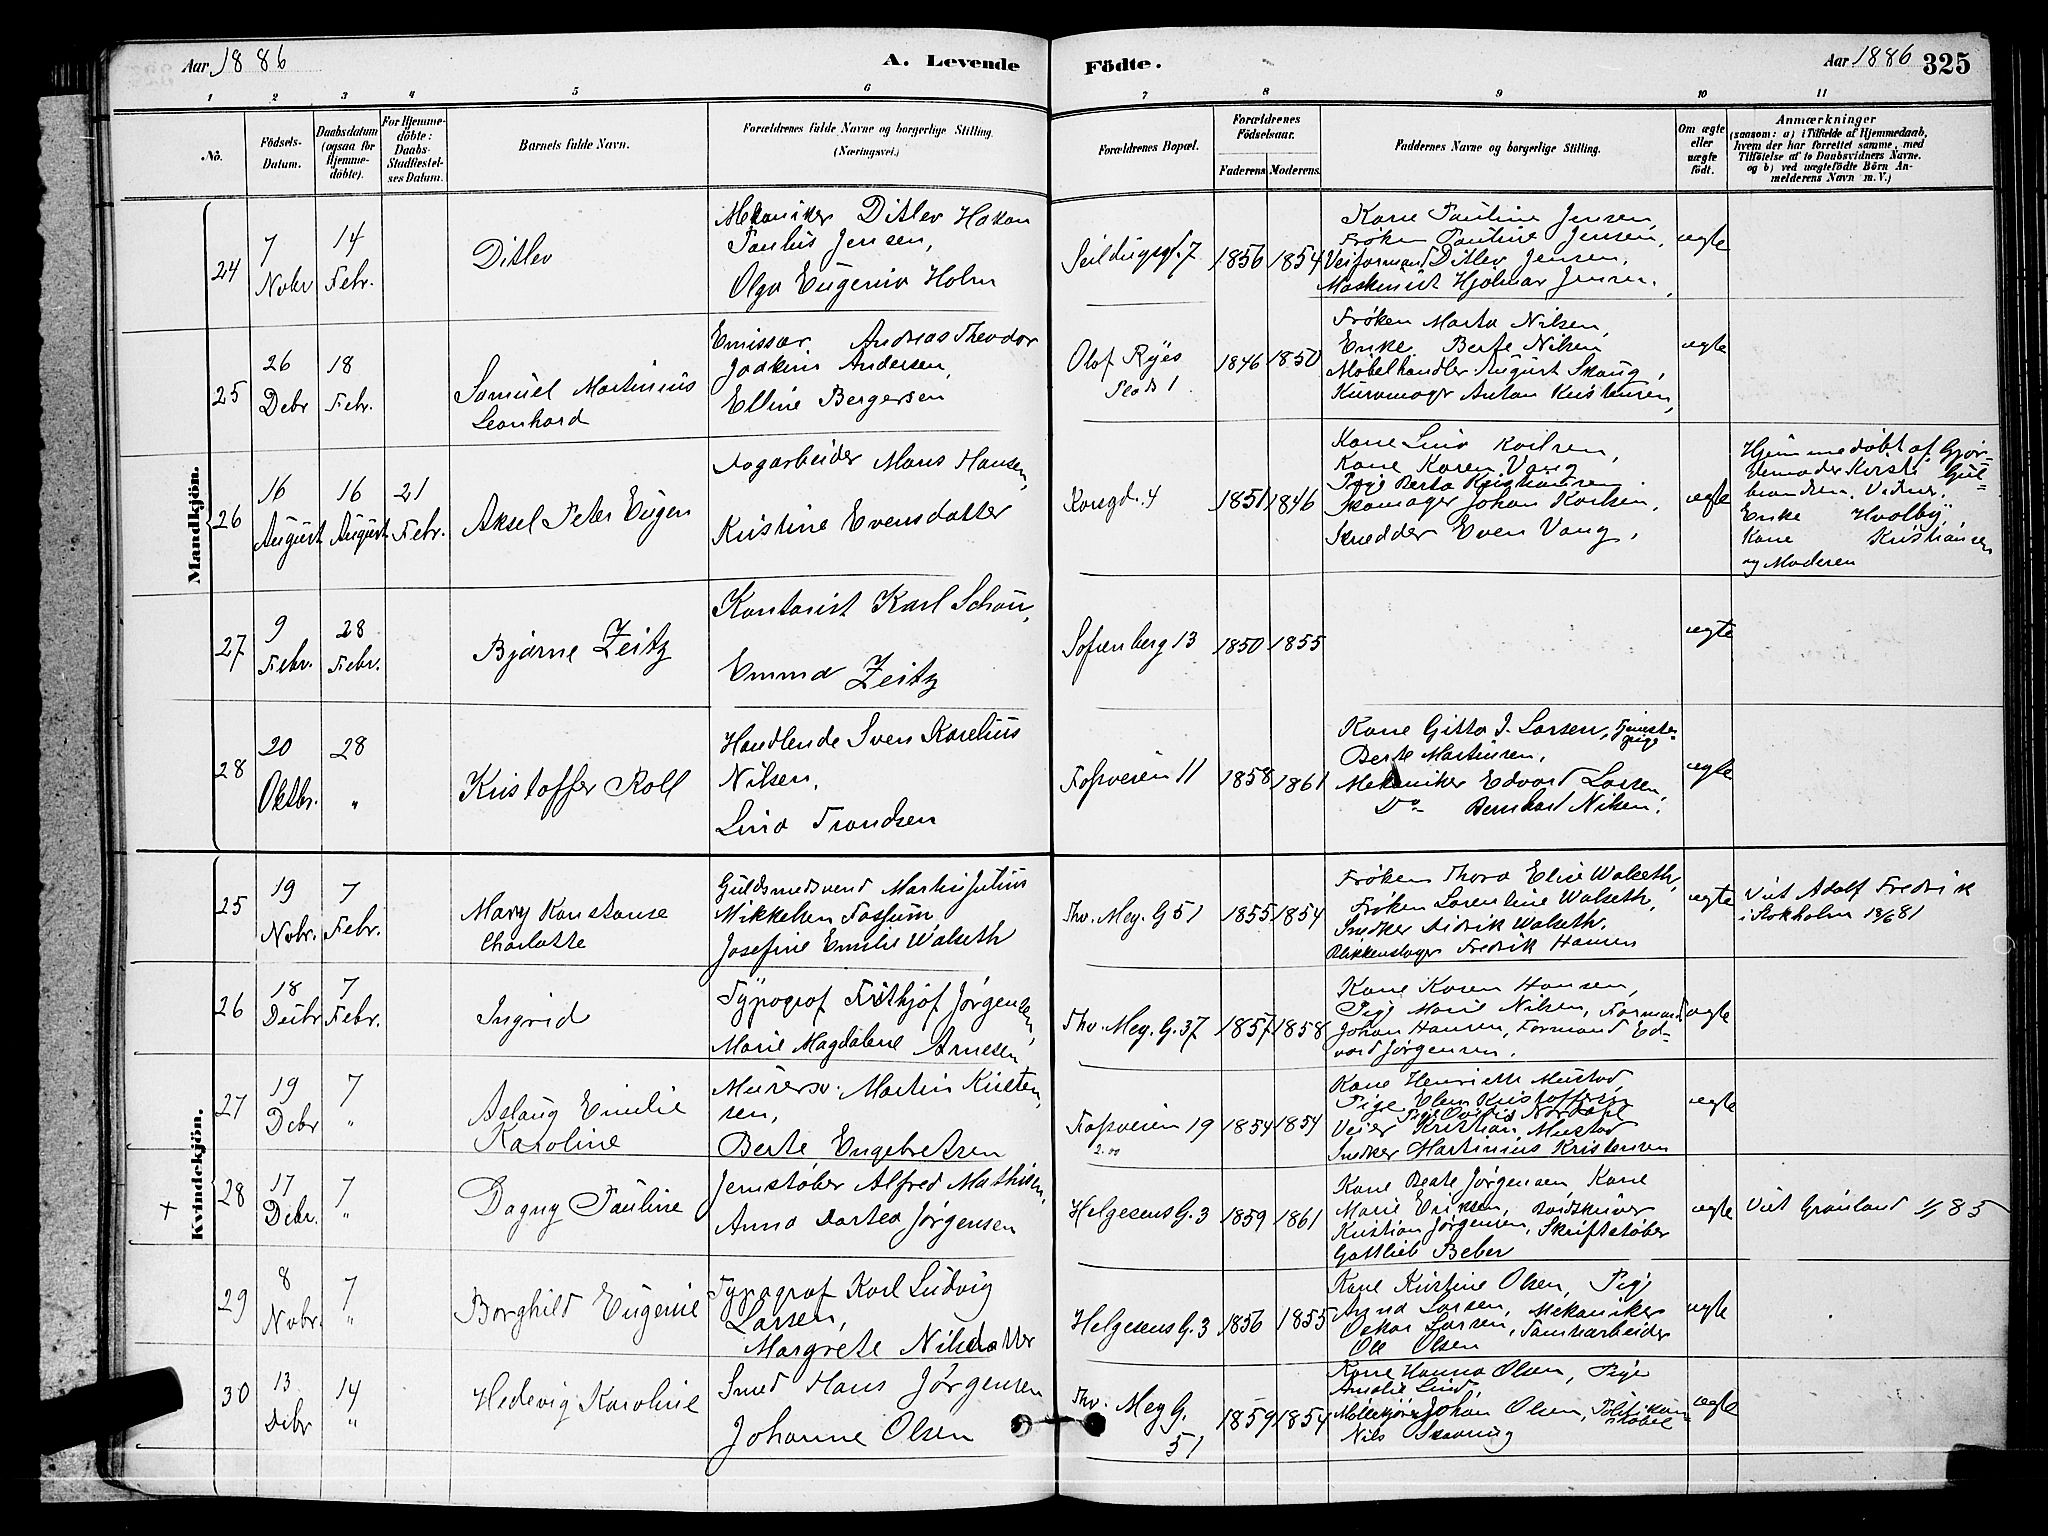 Aar 1886
A. Levende
Födte.
Aar 1886
325
1 2 3 4 5 6 7 8 9 10 11
No.
Födsels-
Datum.
Daabsdatum
(ogsaa for
Hjemme-
döbte).
For Hjemme-
döbte:
Daabs-
Stadfæstel-
ses Datum.
Barnets fulde Navn.
Forældrenes fulde Navne og borgerlige Stilling.
(Næringsvei.)
Forældrenes Bopæl.
Forældrenes
Födselsaar.
Faderens Moderens.
Faddernes Navne og borgerlige Stilling.
Om ægte
eller
uægte
født.
Anmærkninger
(saasom: a) i Tilfælde af Hjemmedaab,
hvem der har forrettet samme, med
Tilföielse af to Daabsvidners Navne.
og b) ved uægtefödte Börn An-
melderens Navn m. V.)
Mandkjön.
24
7
Nobr
14
Febr.
Ditlev
Mekaniker Ditlev Hakon
Paulus Jensen,
Olga Eugenia Holm
1856 1854
Kone Pauline Jensen,
Frøken Pauline Jensen,
Veiformand Ditlev Jensen,
Maskinist Hjalmar Jensen.
ægte
25
26
Debr
18
Febr.
Samuel Martinius
Leonhard
Emissær Andreas Theodor
Joakim Andersen,
Elline Bergersen
Olaf Ryes
Plads 1
1846 1850
Frøken Marta Nilsen,
Enke Berte Nilsen
Møbelhandler August Skaug,
Kurvmager Anton Kristensen,
ægte
26
16
August
16
August
21
Febr.
Aksel Peter Eugen
Hans Hansen,
Kristine Evensdatter
Korsgd. 4
1851 1846
Kone Lina
Kone Karen Vang
Pige Berta Kristiansen
Skomager Johan
Skrædder Even Vang,
ægte
Hjemmedøbt af Gjor-
demoder Kirsti Gul-
brandsen. Vidner.
Enke Hvolby
Kone Kristiansen
og Moderen
27
9
Febr.
28
Febr.
Bjarne Zeitz
Kontorist Karl Schou,
Emma Zeitz
Sofienberg 13
1850 1855
ægte
28
20
Oktbr.
28
"
Kristoffer Roll
Handlende Sven Karelius
Nilsen,
Lina Frandsen
Fossveien 11
1858 1861
Kone Gitta J. Larsen, Tjeneste-
pige
Berte Martinsen,
Mekaniker Edvard Larsen,
Do Bernhard Nilsen.
ægte
Kvindekjön.
25
19
Nobr.
7
Febr.
Mary Konstanse
Charlotte
Guldsmedsvend Martin Julius
Mikkelsen Fossum
Josefine Emilie Walseth
Thv. Mey. G 51
1855 1854
Frøken Thora Elise Walseth,
Frøken Lorentine Walseth,
Snedker Didrik Walseth.
Blikkenslager Fredrik Hansen
ægte
Viet Adolf Fredrik
i Stokholm 18/6 81
26
18
Debr
7
Febr.
Ingrid
Typograf Frithjof Jørgensen,
Marie Magdalene Arnesen
Thv. Mey. G. 37
1857 1858
Kone Karen Hansen,
Pige Marie Nilsen, Formand
Johan Hansen, Formand Ed-
vard Jørgensen.
ægte
27
19
Debr
7
"
Aslaug Emilie
Karoline
Murersv. Martin Kristen
sen,
Berte Engebretsen
Fossveien 19
1854 1854
Kone Henriette Mustad,
Pige Elen Kristoffersen
Pige Nordahl
Veier Kristian Mustad
Snedker Martinius Kristensen
ægte
+
28
17
Debr.
7
"
Dagny Pauline
Jernstøber Alfred Mathisen,
Anna Dortea Jørgensen
Helgesens G. 3
1859 1861
Kone Beate Jørgensen, Kone
Marie Eriksen, Baadskriver
Kristian Jørgensen, Skriftstøber
Gottlieb Beber
ægte
Viet Grønland 85
29
8
Nobr.
7
"
Borghild Eugenie
Typograf Karl Ludvig
Larsen,
Margrete Nilsdatter
Helgesens G. 3
1856 1855
Kone Kirstine Olsen, Pige
Anna Larsen, Mekaniker
Oskar Larsen, Tomtearbeider
Ole Olsen
ægte
30
13
Debr
14
"
Hedevig Karoline
Smed Hans Jørgensen
Johanne Olsen
Thv. Mey G.
51
1859 1854
Kone Hanna Olsen, Pige
Amalie Lind,
Møllekjører Johan Olsen, Politikon-
stabel
Nils
ægte